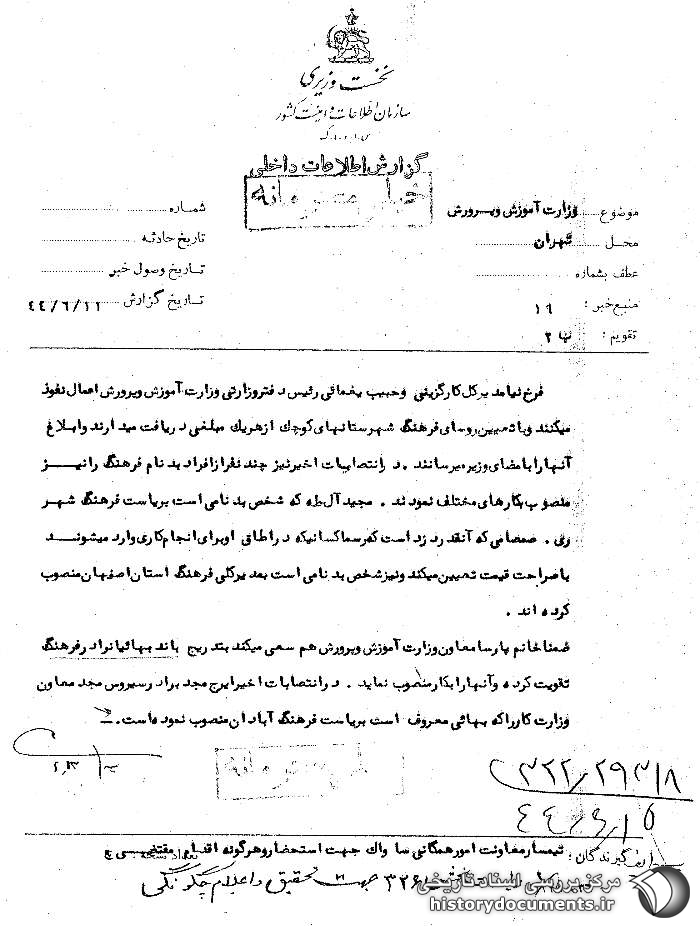 نخست وزیری
سازمان اطلاعات و امنیت کشور
س.ا.و.ا.ک
گزارش اطلاعات داخلی
خیلی محرمانه
موضوع ..... وزارت آموزش و پرورش
محل ..... تهران
عطف بشماره
منبع خبر : ۱۹
تقویم :
شماره
تاریخ حادثه
تاریخ وصول خبر
تاریخ گزارش ۴۴/۶/۱۱
فرخ نیا مدیر کل کارگزینی و حبیب یغمائی رئیس دفتر وزارتی وزارت آموزش و پرورش اعمال نفوذ
میکنند و با تعیین روسای فرهنگ شهرستانهای کوچک از هر یک مبلغی دریافت میدارند و ابلاغ
آنها را با مضای وزیر میرسانند . در انتصابات اخیر نیز چند نفر از افراد بد نام فرهنگ را نیز
منصوب بکارهای مختلف نمودند . مجید آل طه که شخص بد نامی است بریاست فرهنگ شهر
ری . صمصامی که آنقدر دزد است که رسما کسانیکه در اطاق او برای انجام کاری وارد میشوند
با صراحت قیمت تعیین میکند و نیز شخص بد نامی است بمدیر کلی فرهنگ استان اصفهان منصوب
کرده اند .
ضمنا خانم پارسا معاون وزارت آموزش و پرورش هم سعی میکند بتدریج باند بهائیان را در فرهنگ
تقویت کرده و آنها را بکار منصوب نماید . در انتصابات اخیر ایرج مجد برادر سیروس مجد معاون
وزارت کار را که بهائی معروف است بریاست فرهنگ آبادان منصوب نموده است .
خیلی محرمانه
۳۲۲/۲۹۳۱۸
۴۴/۶/۱۵
گیرندگان : تیمسار معاونت امور همگانی ساواک جهت استحضار و هرگونه اقدام مقتضی
تعداد نسخه
۳۲۶ جهت تحقیق و اعلام چگونگی
مرکز بررسی اسناد تاریخی
historydocuments.ir